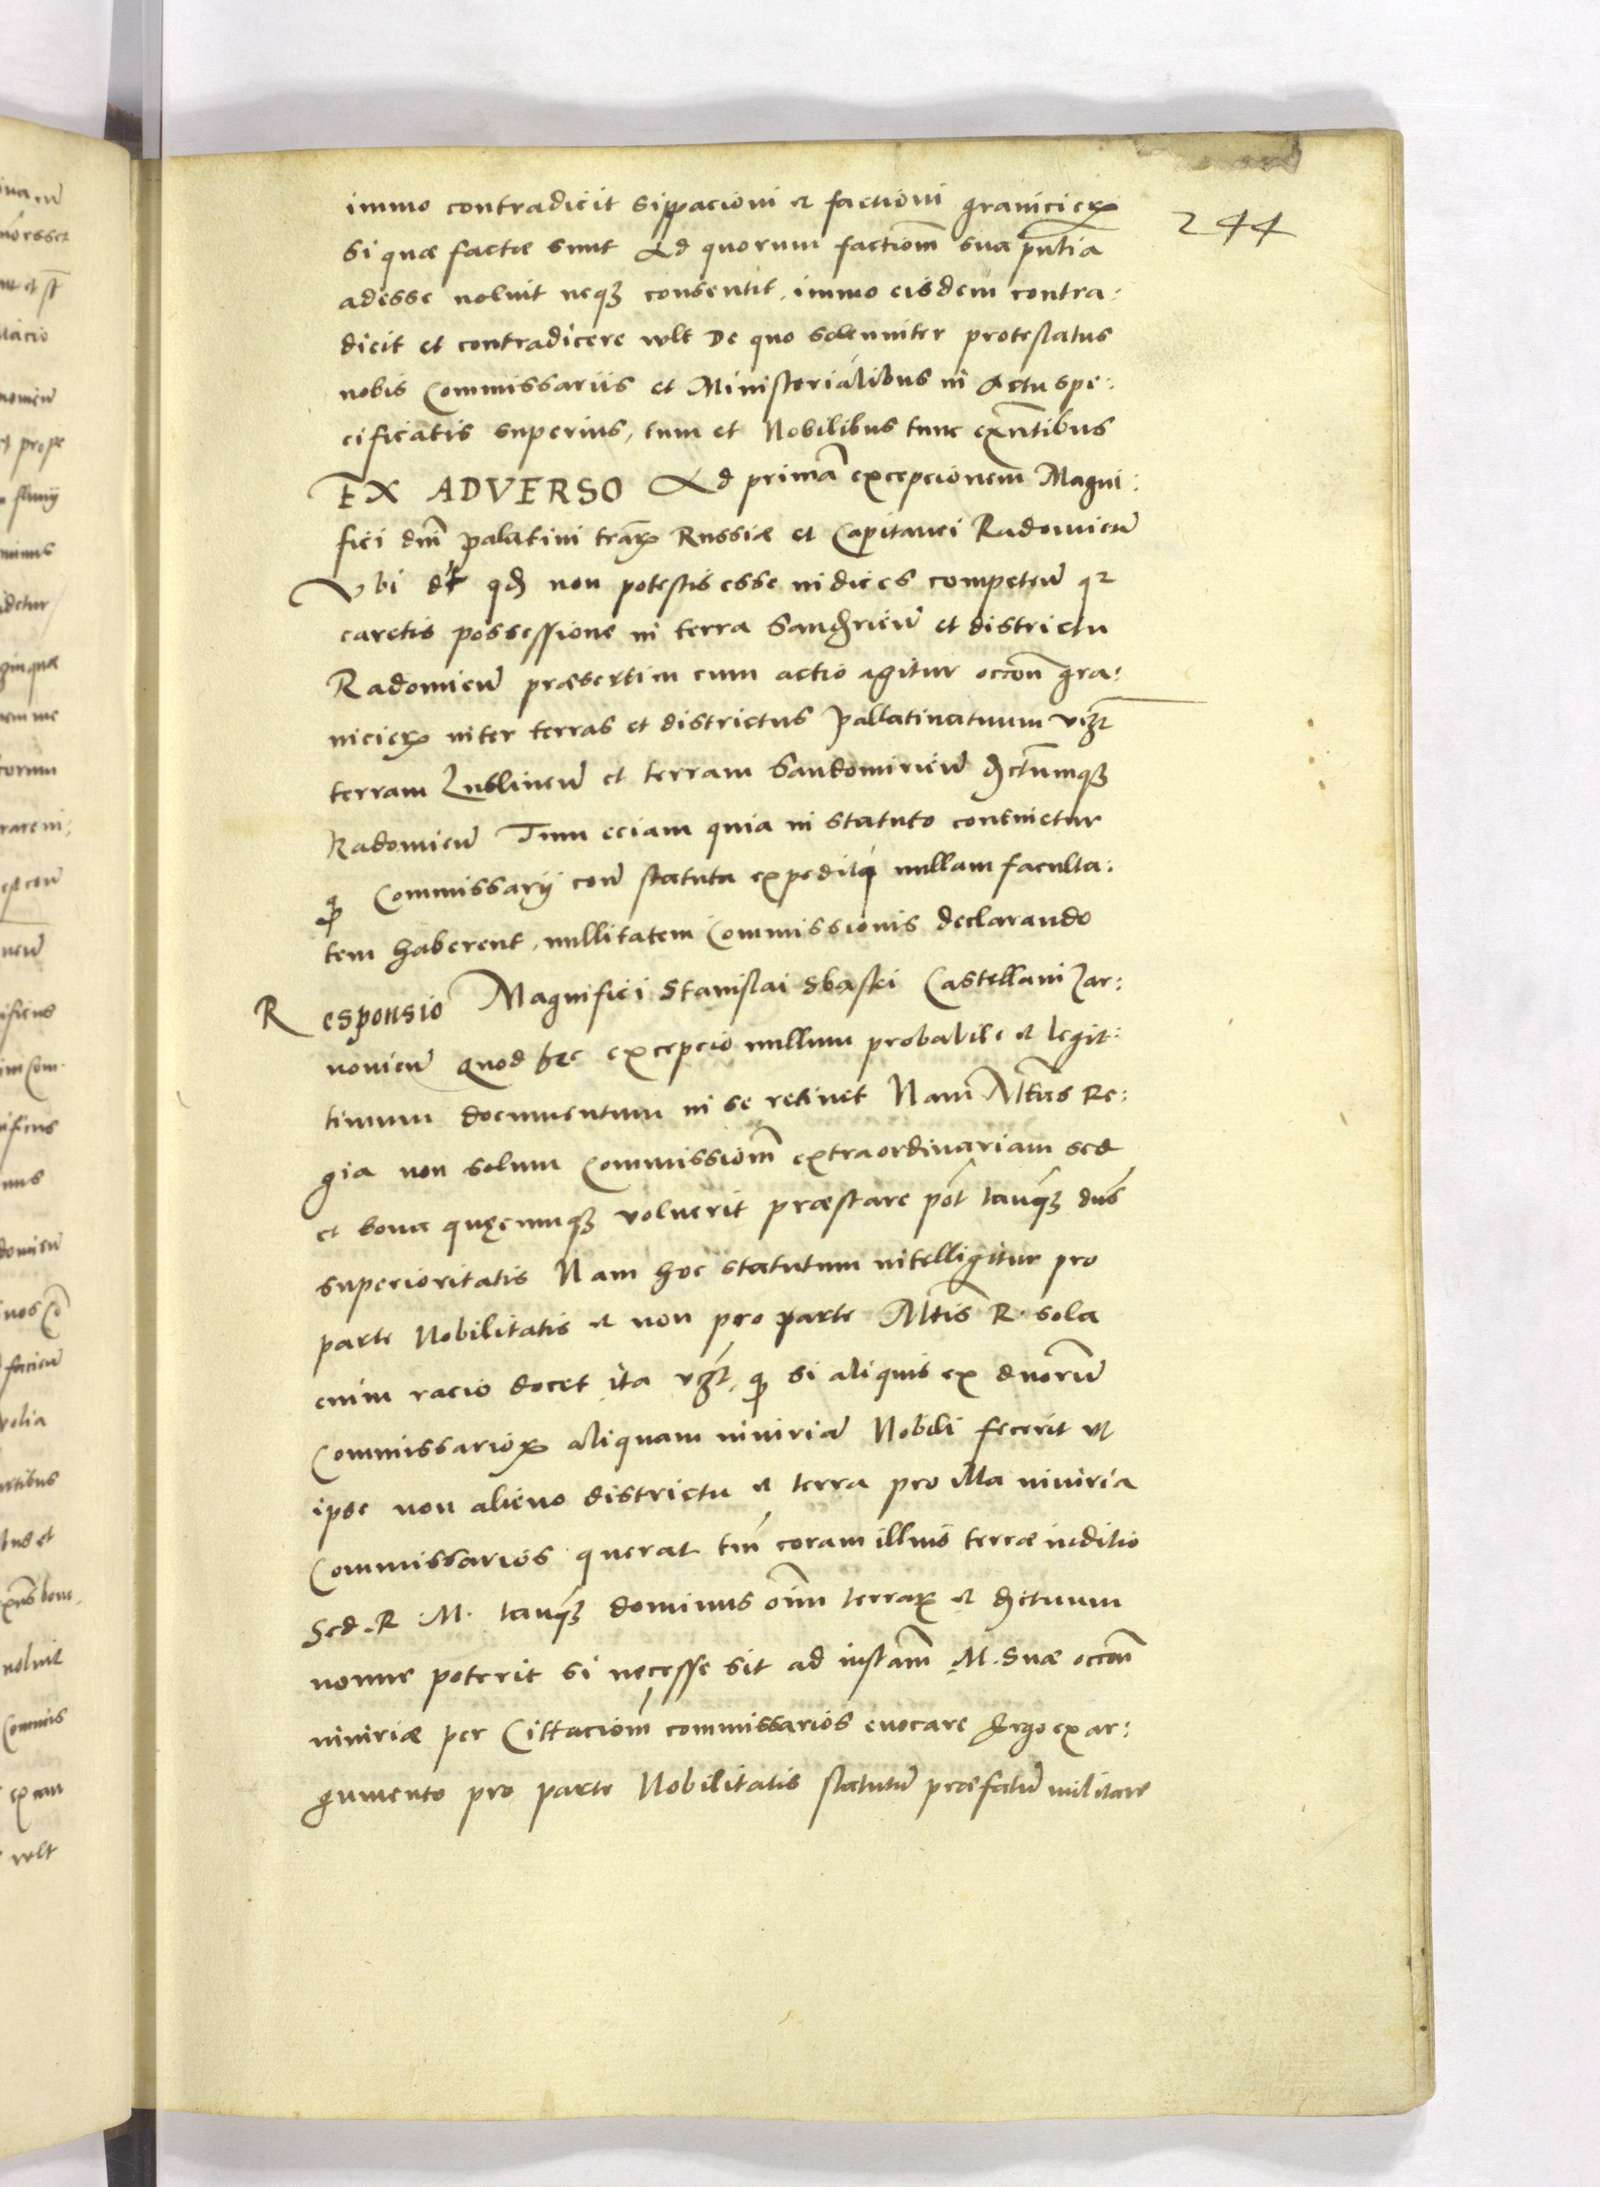 244
immo contradicit sippacioni et factioni granicierꝝ
si quæ factæ sunt Ad quorum factiom̄ sua pn̄tia
adesse noluit neqꝫ consentit, immo eisdem contra:
dicit et contradicere vult De quo solenniter protestatus
nobis Commissariis et Ministerialibus in Actu spe:
cificatis superius, tum et Nobilibus tunc exn̄tibus
EX ADVERSO Ad primā excepcionem Magni:
fici dn̄i palatini trāꝝ Russiæ et Capitanei Radomieñ
Ubi dr̄ qđ non potestis esse iudices competeñ qꝛ
caretis possessione in terra Sandrieñ et districtu
Radomieñ præsertim cum actio agitur occōn gra:
nicierꝝ inter terras et districtus Pallatinatuum vꝫt
terram Lublineñ et terram Sandomirieñ dctumqꝫ
Radomieñ Tum eciam quia in statuto continetur
ꝙ Commissarij con̄ statuta expediti nullam faculta:
tem haberent, nullitatem Commissionis declarando
Responsio Magnifici Stanislai Sbąski Castellani Zar:
novieñ Quod hæc excepcio nullum probabile et legit:
timum documentum in se retinet Nam Mtas Re:
gia non solum Commissiom̄ extraordinariam sed
et bona quęcumqꝫ voluerit præstare pōt tanqꝫ dn̄s
superioritatis Nam hoc statutum intelligitur pro
parte Nobilitatis et non pro parte Mtis R. sola
enim racio docet ita vꝫt, ꝙ si aliquis ex duorum̄
Commissarioꝝ aliquam iniuriā Nobili fecerit ut
ipse non alieno districtu et terra pro illa iniuria
Commissarios querat tm̄ coram illius terræ iuditio
Sed .R .M. tanqꝫ dominus oīm terraꝝ et dctuum
nonne poterit si necesse sit ad instām M. Suæ occōn
iniuriæ per Cittaciom̄ commissarios evocare Ergo ex ar:
gumento pro parte Nobilitatis statutū præfatū militare